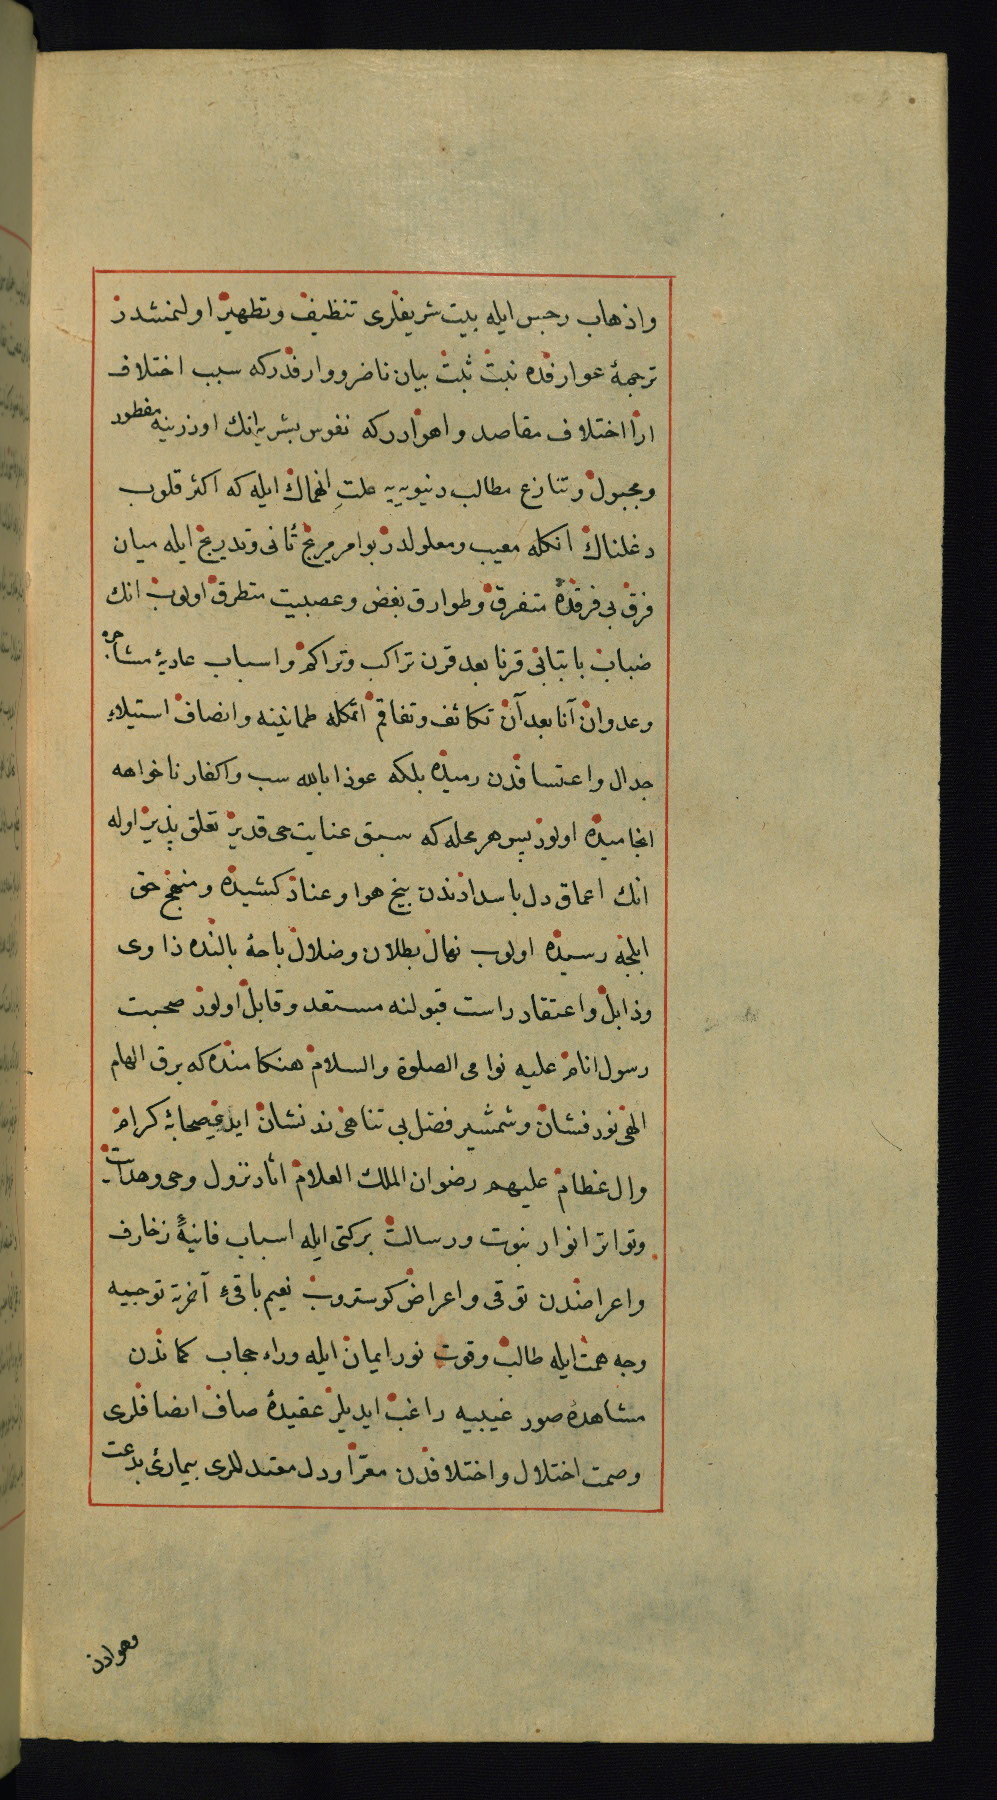 واذهاب رجس ايله بيت شريفلری تنظيف وتطهير اولنمشدر
ترجمهٔ عوارفده نبت ثبت بيان ناضر ووارفدركه سبب اختلاف
ارا اختلاف مقاصد واهوادركه نفوس بشريه انك اوزرينه مفطور
ومجبول وتنازع مطالب دنيويه يه علتِ انهماك ايله كه اكثر قلوب
دغلناك انكله معيب ومعلولدر بوامر مريج ثانی وتدريج ايله ميان
فرق بی فرقدهٔ متفرق وطوارق بغض وعصبيت متطرق اولوب انك
ضباب بابتبانی قرنا بعد قرن تراكب وتراكم واسباب عاديهٔ مشاجره
وعدوان آنا بعد آن تكاثف وتفاقم اتمكله طمانينه وانصاف استيلاءِ
جدال واعتسافدن رميده بلكه عوذا بالله سب واكفار ناخواهه
انجاميده اولور پس هر محله كه سبق عنايت حی قدير تعلق پذير اوله
انك اعماق دل باسدادندن بيخ هوا وعناد كشيده ومنهج حق
ابلجه رسيده اولوب نهال بطلان وضلال باحهٔ بالنده ذاوی
وذابل واعتقاد راست قبولنه مستعد وقابل اولور صحبت
رسول انام عليه نوامی الصلوة والسلام هنكامنده كه برق الهام
الهی نور فشان وشمشير فضل بی تناهی زد نشان ايدی صحابهٔ كرام
وال عظام عليهم رضوان الملك العلام اثار نزول وحی وهدايت
وتواتر انوار نبوت ورسالت بركتی ايله اسباب فانيهٔ زخارف
واعراضدن توقی واعراض كوستروب نعيم باقیٔ آخرته توجيه
وجه همت ايله طالب وقوت نور ايمان ايله وراء حجاب كماندن
مشاهدهٔ صور غيبيه راغب ايديلر عقيدهٔ صاف انصافلری
وصمت اختلال واختلافدن معرّا ودل معتدللری بيماریٔ بدعت
وهوادن